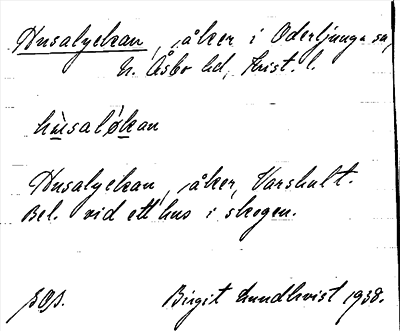 Husalyckan, åker i Oderljunga sn,
N. Åsbo hd, Krist. l.
hùsaløkan
Husalyckan, åker, Varshult.
Bel. vid ett hus i skogen.
Birgit Lundkvist 1938.